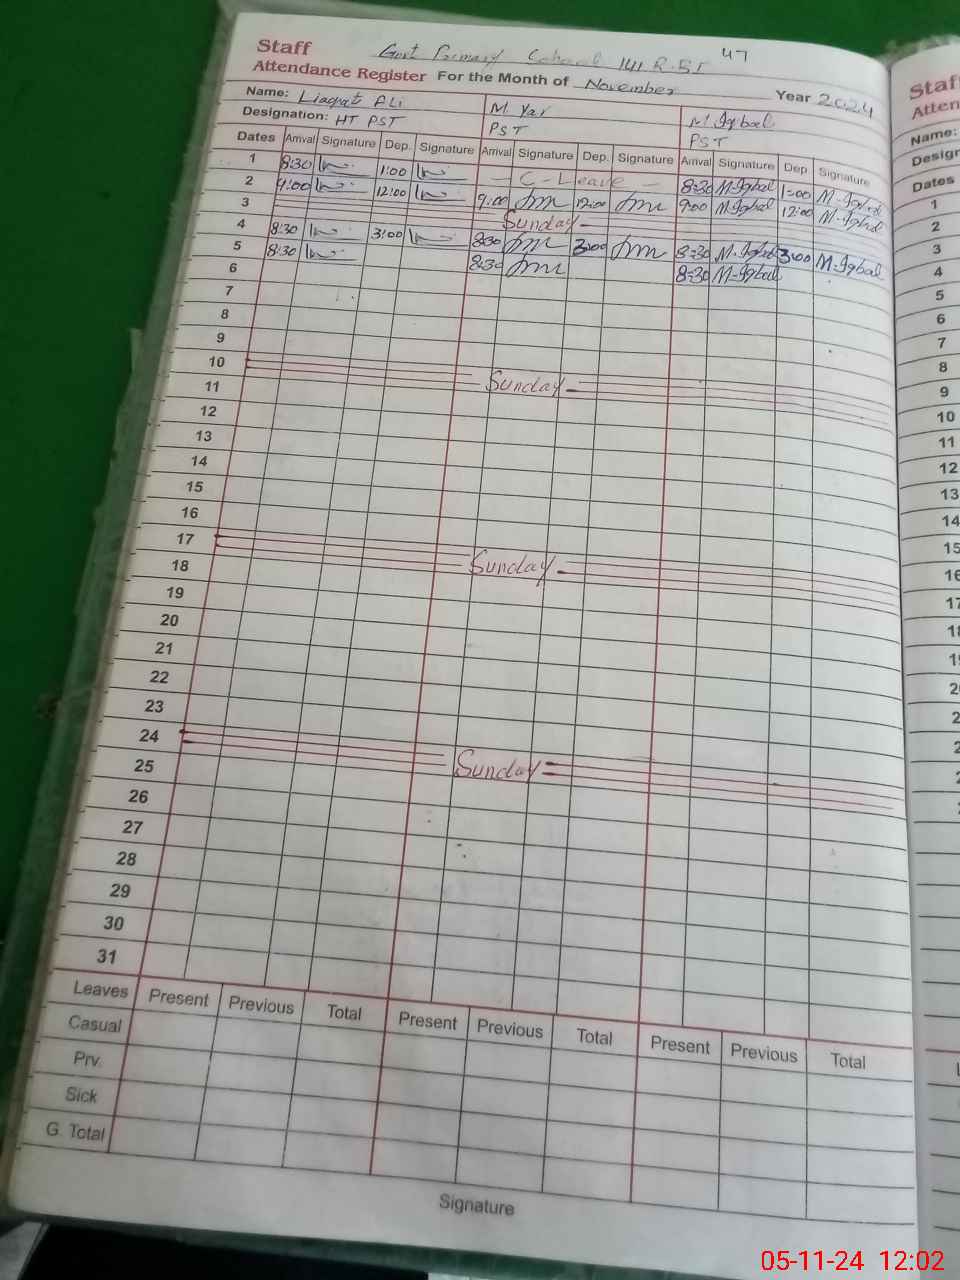 Govt Primary School 141 R.BI 47
Staff
Attendance Register For the Month of November Year 2024
Name: Liaqat Ali M Yar M Iqbal
Designation: HT PST PST PST
Dates Arrival Signature Dep. Signature Arrival Signature Dep. Signature Arrival Signature Dep. Signature
1 8:30 1:00 - C-Leave - 8:30 M-Iqbal 1:00 M-Iqbal
2 9:00 12:00 9:00 12:00 9:00 M-Iqbal 12:00 M-Iqbal
3 Sunday -
4 8:30 3:00 8:30 3:00 8:30 M-Iqbal 3:00 M-Iqbal
5 8:30 8:30 8:30 M-Iqbal
6
7
8
9
10 Sunday -
11
12
13
14
15
16
17 Sunday -
18
19
20
21
22
23
24 Sunday
25
26
27
28
29
30
31
Leaves Present Previous Total Present Previous Total Present Previous Total
Casual
Prv.
Sick
G. Total
Signature
Staff
Atten
Name:
Design
Dates
1
2
3
4
5
6
7
8
9
10
11
12
13
14
15
16
17
05-11-24 12:02